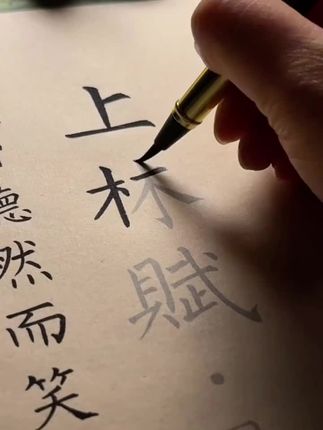 上林賦·
然而笑